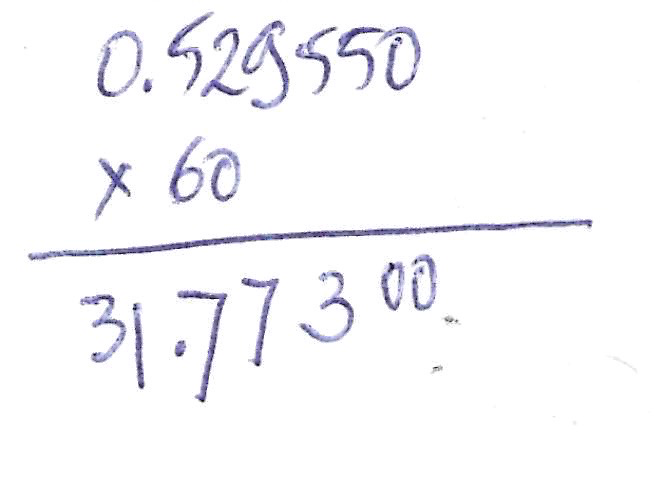 0.529550
× 60
31.77300